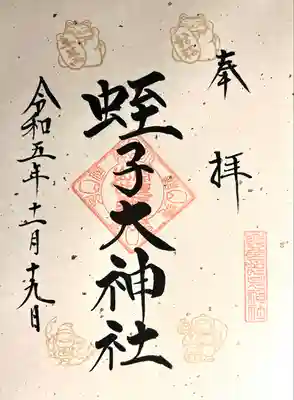 奉拝
蛭子大神社
令和五年十一月十九日